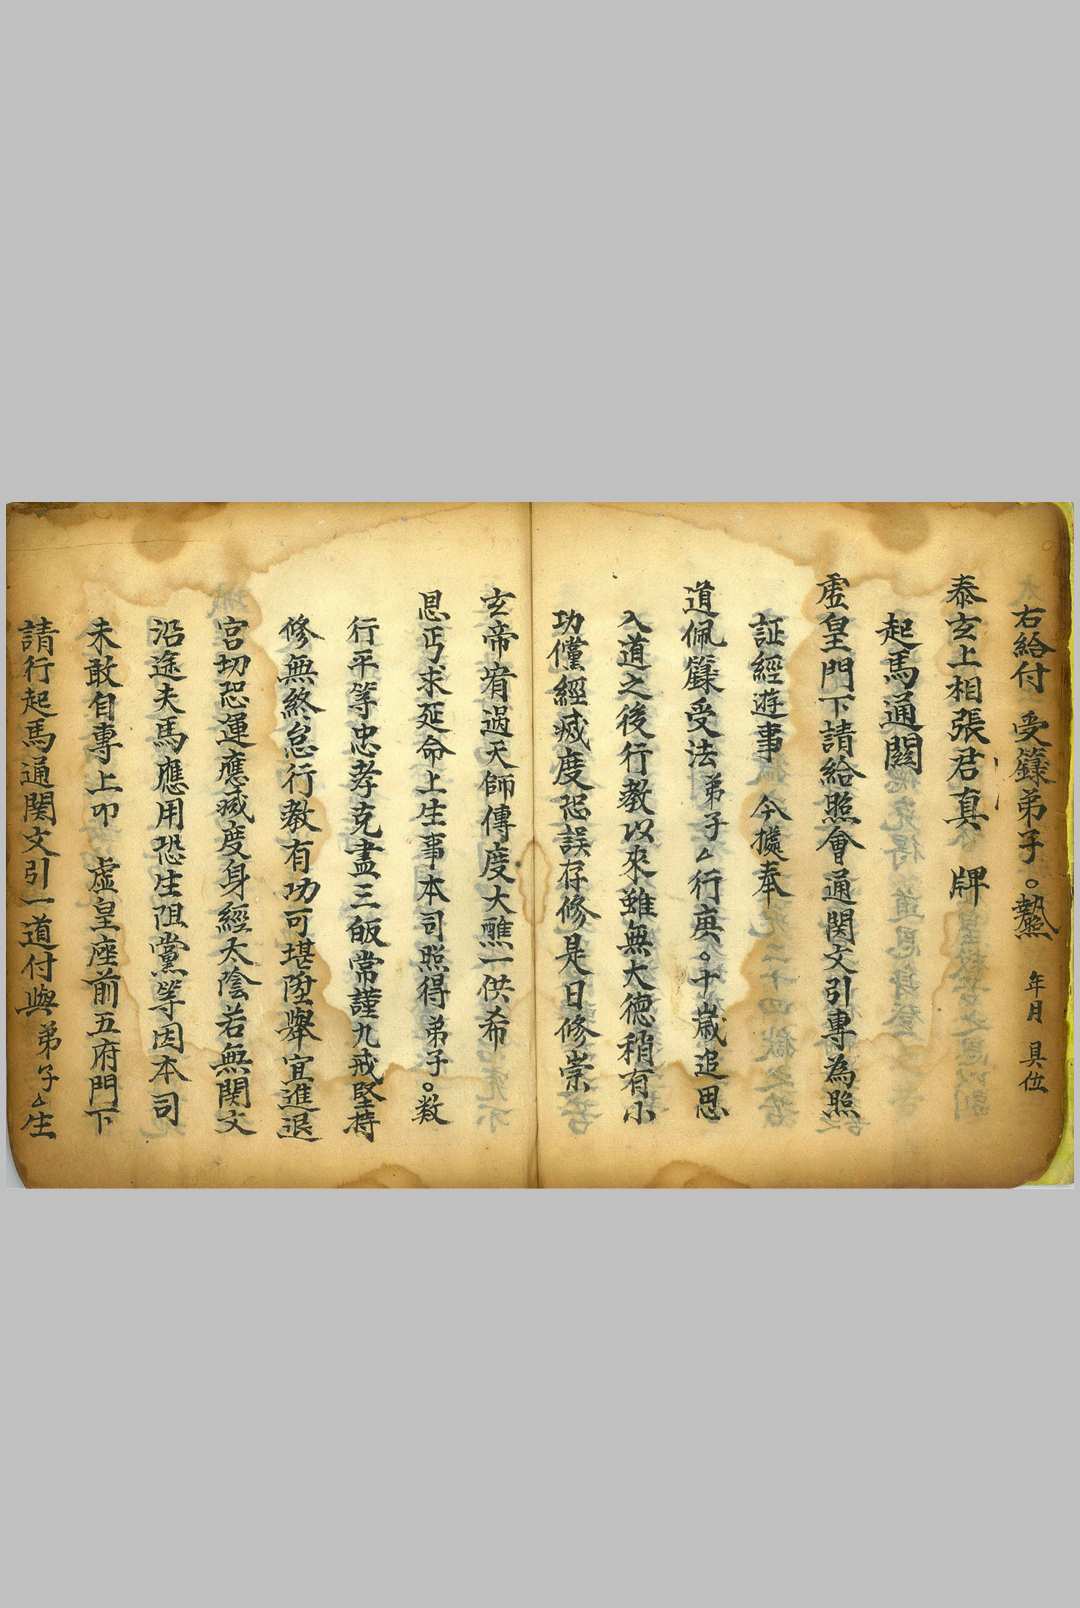 右給付 受籙弟子○熱 年月 具位
泰玄上相張君真 牌
起馬通關
虛皇門下請給照會通関文引專為照
証經遊事 今據奉
道佩籙受法弟子厶行庚○十歲追思
入道之後行教以來雖無大德稍有小
功儻經滅度恐誤存修是日修崇
玄帝宥過天師傳度大醮一供希
恩丐求延命上生事本司照得弟子○数
行平等忠孝克盡三皈常謹九戒堅持
修無終怠行教有功可堪陞舉宜進退
宮切恐運應滅度身經太陰若無関文
沿途夫馬應用恐生阻黨等因本司
未敢自專上叩 虛皇座前五府門下
請行起馬通関文引一道付與弟子厶生